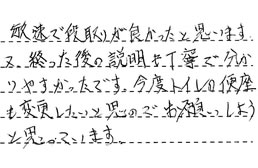 敏速で役取りが良かったと思います
又、終った後の説明も丁寧で分か
りやすかったです。今度トイレの便座
も変更したいと思うのでお願いしよう
と思っています。